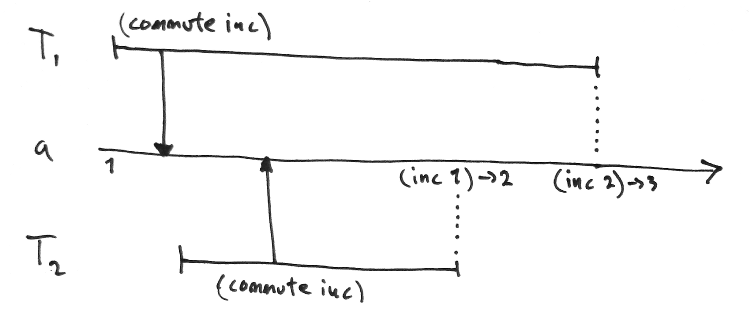 (commute inc)
T1
a
1
(inc 1)→2
(inc 2)→3
T2
(commute inc)